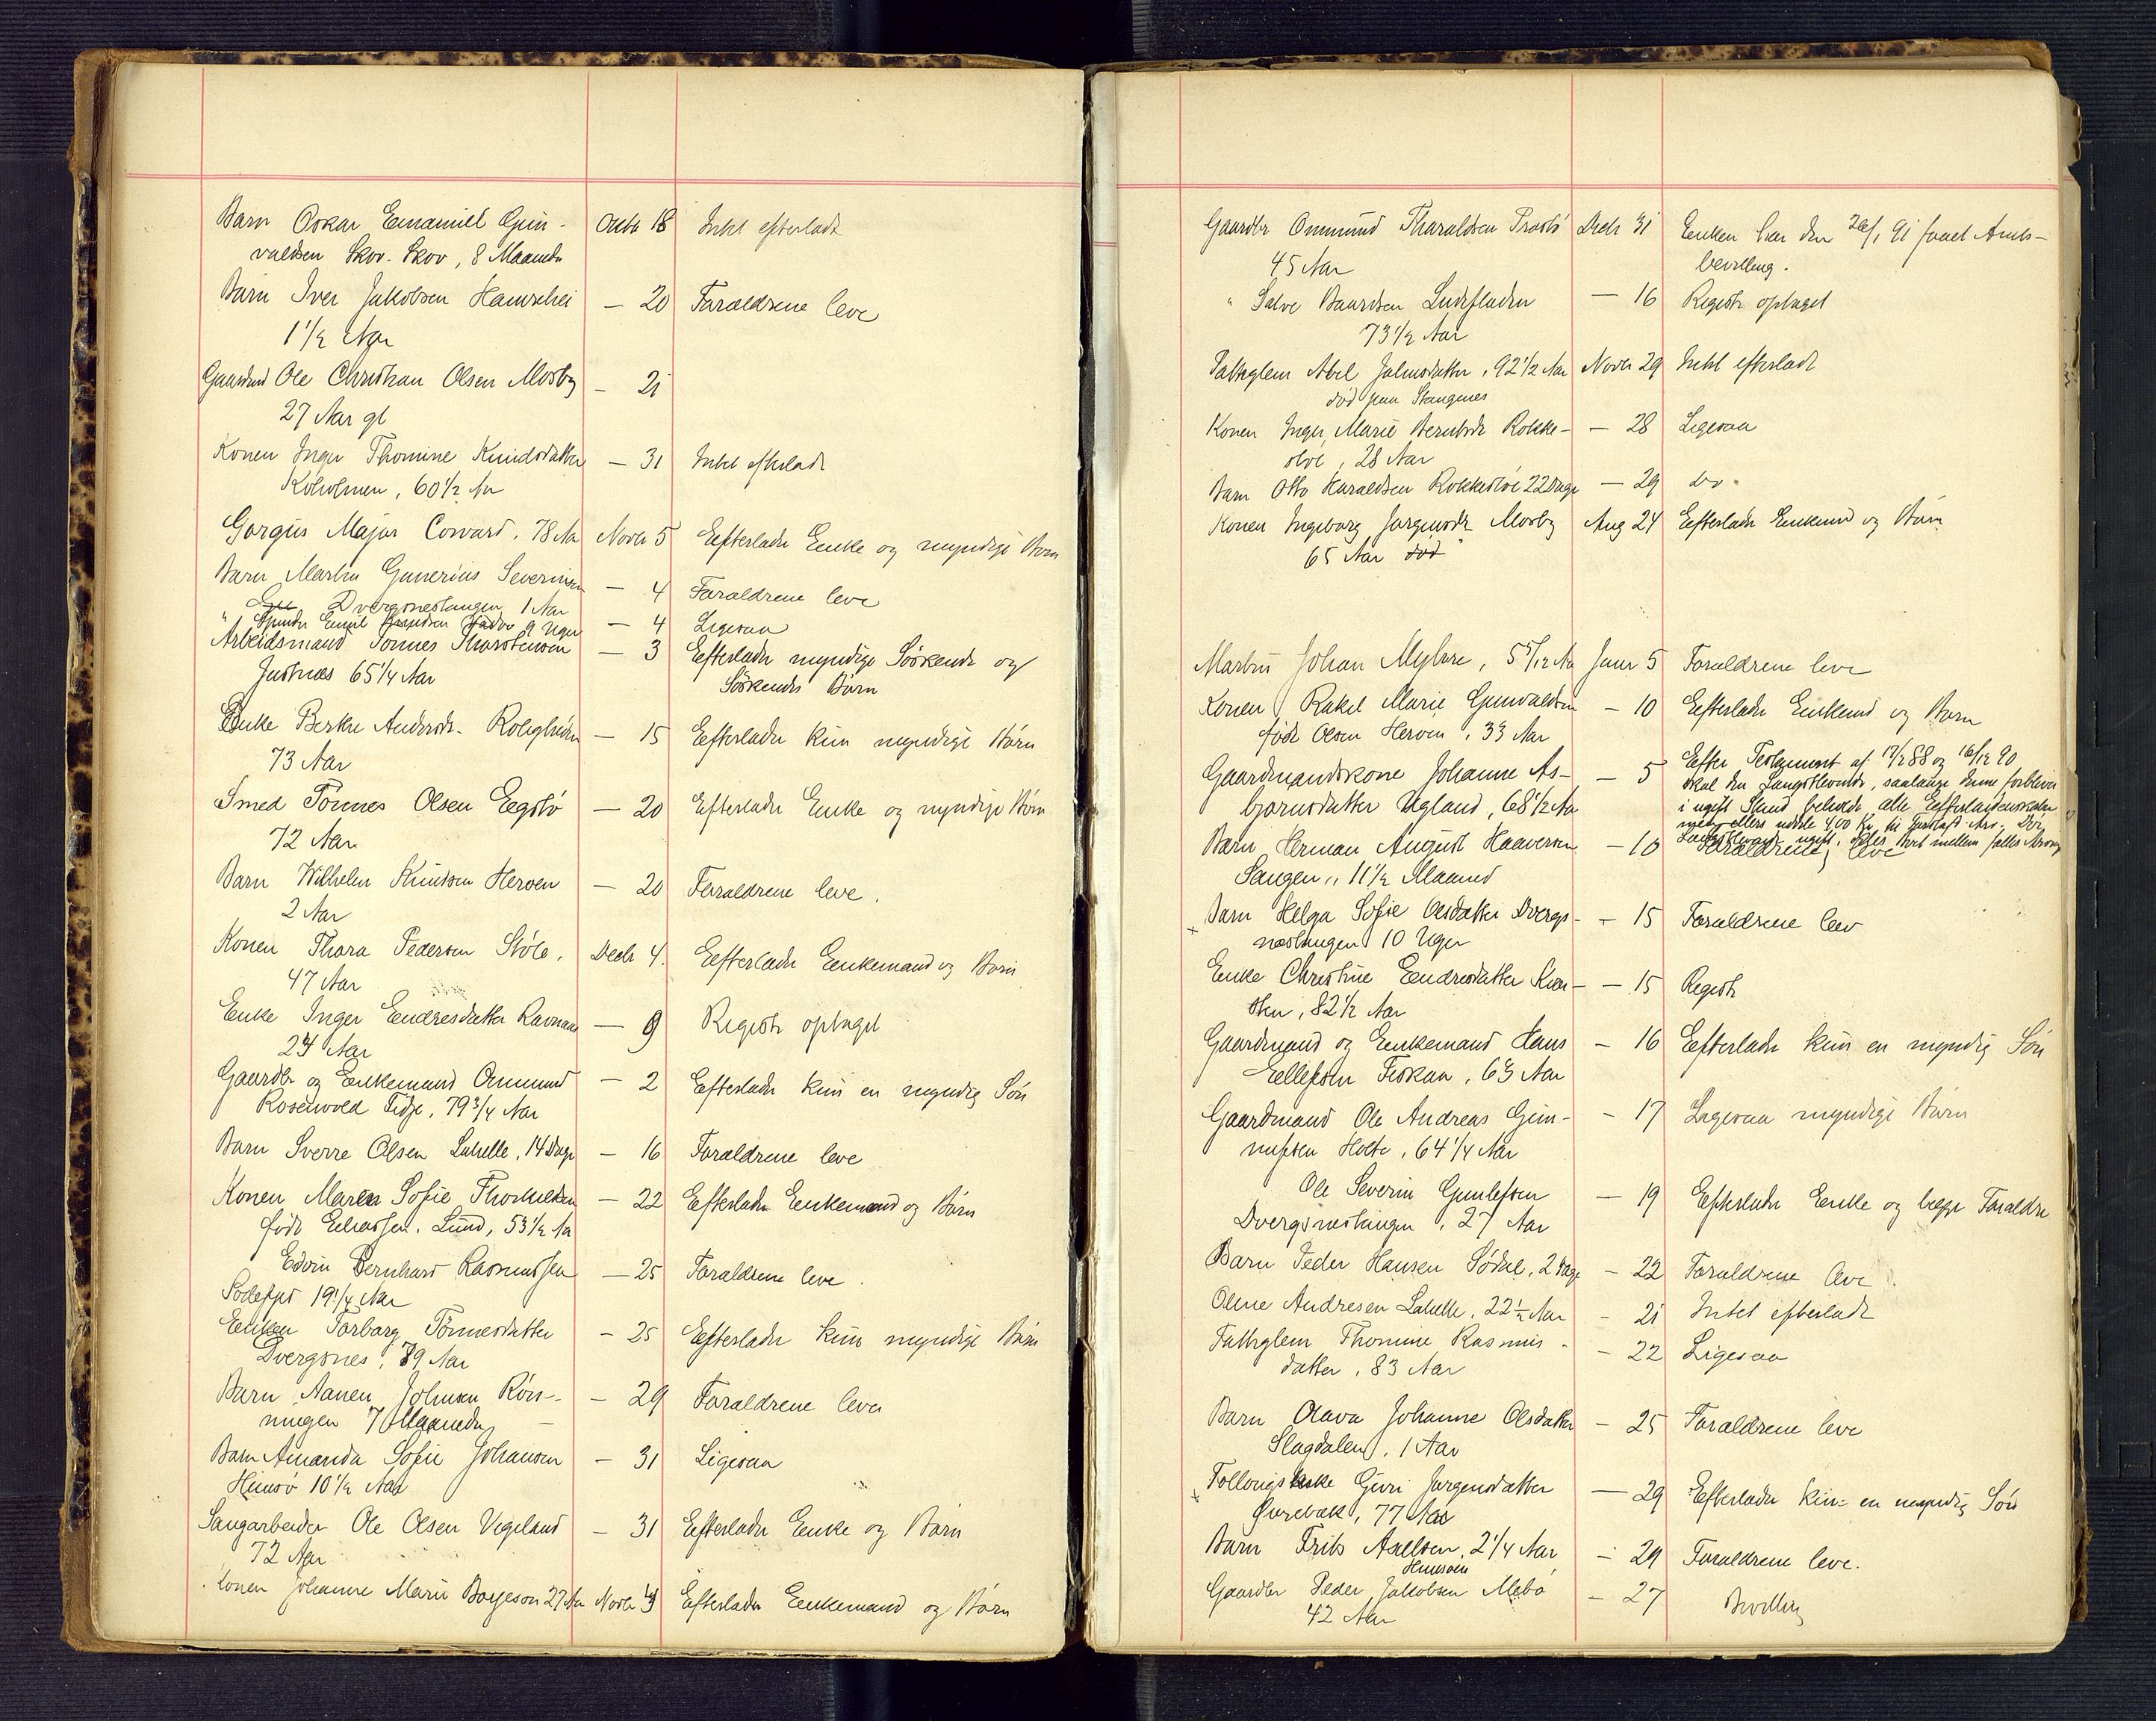 Barn Oskar Emanuel Gun- Octbr 18 Intet efterladt
valdsen Skov. Skov, 8 Maaneder
Barn Iver Jakobsen Hamrehei — 20 Forældrene leve
1 1/2 Aar
Gaardmd Ole Christian Olsen Mosby — 21
27 Aar gl
Konen Inger Thomine Knudsdatter — 31 Intet efterladt
Koholmen, 60 1/2 Aar
Gorgus Major Coward, 78 Aar Novbr 5 Efterlader Enke og myndige Børn
Barn Martin Gunerius Severinsen — 4 Forældrene leve
Dvergsnestangen 1 Aar
" Emil 9 Uger — 4 Ligesaa
Arbeidsmand Tønnes Thorstensen — 3 Efterlader myndige Søskende og
Justnæs 65 1/4 Aar Søskendes Børn
Enke Berthe Andersdr. Roligheden — 15 Efterlader kun myndige Børn
73 Aar
Smed Tønnes Olsen Egstø — 20 Efterlader Enke og myndige Børn
72 Aar
Barn Wilhelm Knudsen Herven — 20 Forældrene leve.
2 Aar
Konen Thora Pedersen Støle, Decbr 4. Efterlader Enkemand og Børn
47 Aar
Enke Inger Endresdatter Ravnaas — 9 Registr optaget
24 Aar
Gaardbr og Enkemand Ommund — 2 Efterlader kun en myndig Søn
Rosenvold Tidje, 79 3/4 Aar
Barn Sverre Olsen Lahelle, 14 Dage — 16 Forældrene leve
Konen Maren Sofie Thorkildsen — 22 Efterlader Enkemand og Børn
født Eliassen. Lund, 53 1/2 Aar
Edvin Bernhard Rasmussen — 25 Forældrene leve.
19 1/4 Aar
Enken Torborg Tønnesdatter — 25 Efterlader kun myndige Børn
Dvergsnes, 79 Aar
Barn Aanen Johnsen Røn- — 29 Forældrene leve
ningen 7 Maaneder
Barn Amanda Sofie Johansen — 31 Ligesaa
Hamsø 10 1/2 Aar
Saugarbeider Ole Olsen Vigeland — 31 Efterlader Enke og Børn
72 Aar
Konen Johanne Marie Borgeson 27 Aar Novbr Efterlader Enkemand og Børn
Gaardbr Ommund Tharaldsen Prastø Decbr 31 Enken har den 26/1 91 faaet Amts-
45 Aar bevilling.
" Salve Baardsen — 16 Registr optaget
73 1/2 Aar
Fattiglem Abel Jahnsdatter, 92 1/2 Aar Novbr 29 Intet efterladt
død paa Stangenes
Konen Inger Marie Berntsdr Rokke- — 28 Ligesaa
støl, 28 Aar
Barn Otto Haraldsen Rokkestøl 22 Dage — 29 do.
Konen Ingeborg Jørgensdr Mosby Aug 24 Efterlader Enkemd og Børn
65 Aar død
Martin Johan Myhre, 5 5/12 Aar Janr 5 Forældrene leve
Konen Rakel Marie Gunvaldsen — 10 Efterlader Enkemd og Børn
født Olsen Herven, 33 Aar
Gaardmandskone Johanne As- — 5 Efter Testament af 17/2 88 og 16/12 90
bjørnsdatter Ugland, 68 1/2 Aar skal den Længstlevende, saalænge denne forbliver
i ugift Stand beholde alle Efterladenskaber
men ellers uddele 400 Kr til Arv. Dør
Længstlevende ugift, deles Boet mellem fælles Arving
Barn Herman August Haaversen — 10 Forældrene leve
Sangen, 11 1/2 Maaned
Barn Helga Sofie Olsdatter Dvergs- — 15 Forældrene lev
nestangen 10 Uger
Enke Christine Endresdatter Kvar- — 15 Registr
sten, 82 1/2 Aar
Gaardmand og Enkemand Hans — 16 Efterlader kun en myndig Søn
Ellefsen Fiskaa, 63 Aar
Gaardmand Ole Andreas Gun- — 17 Ligesaa myndige Børn
nufsen Holte, 64 1/4 Aar
Ole Severin Gunlefsen — 19 Efterlader Enke og begge Forældre
Dvergsnestangen, 27 Aar
Barn Peder Hansen Sødal, 2 Dage — 22 Forældrene leve.
Oline Andresen Lahelle, 22 1/2 Aar — 21 Intet efterladt
Fattiglem Thomine Rasmus- — 22 Ligesaa
datter, 83 Aar
Barn Olava Johanne Olsdatter — 25 Forældrene leve
Slagdalen, 1 Aar
Follougsenke Guri Jørgensdatter — 29 Efterlader kun en myndig Søn
77 Aar
Barn Frits Axelsen, 2 1/4 Aar — 29 Forældrene leve.
Hamsøen
Gaardbr Peder Jakobsen Mebø — 27 Bevilling
42 Aar